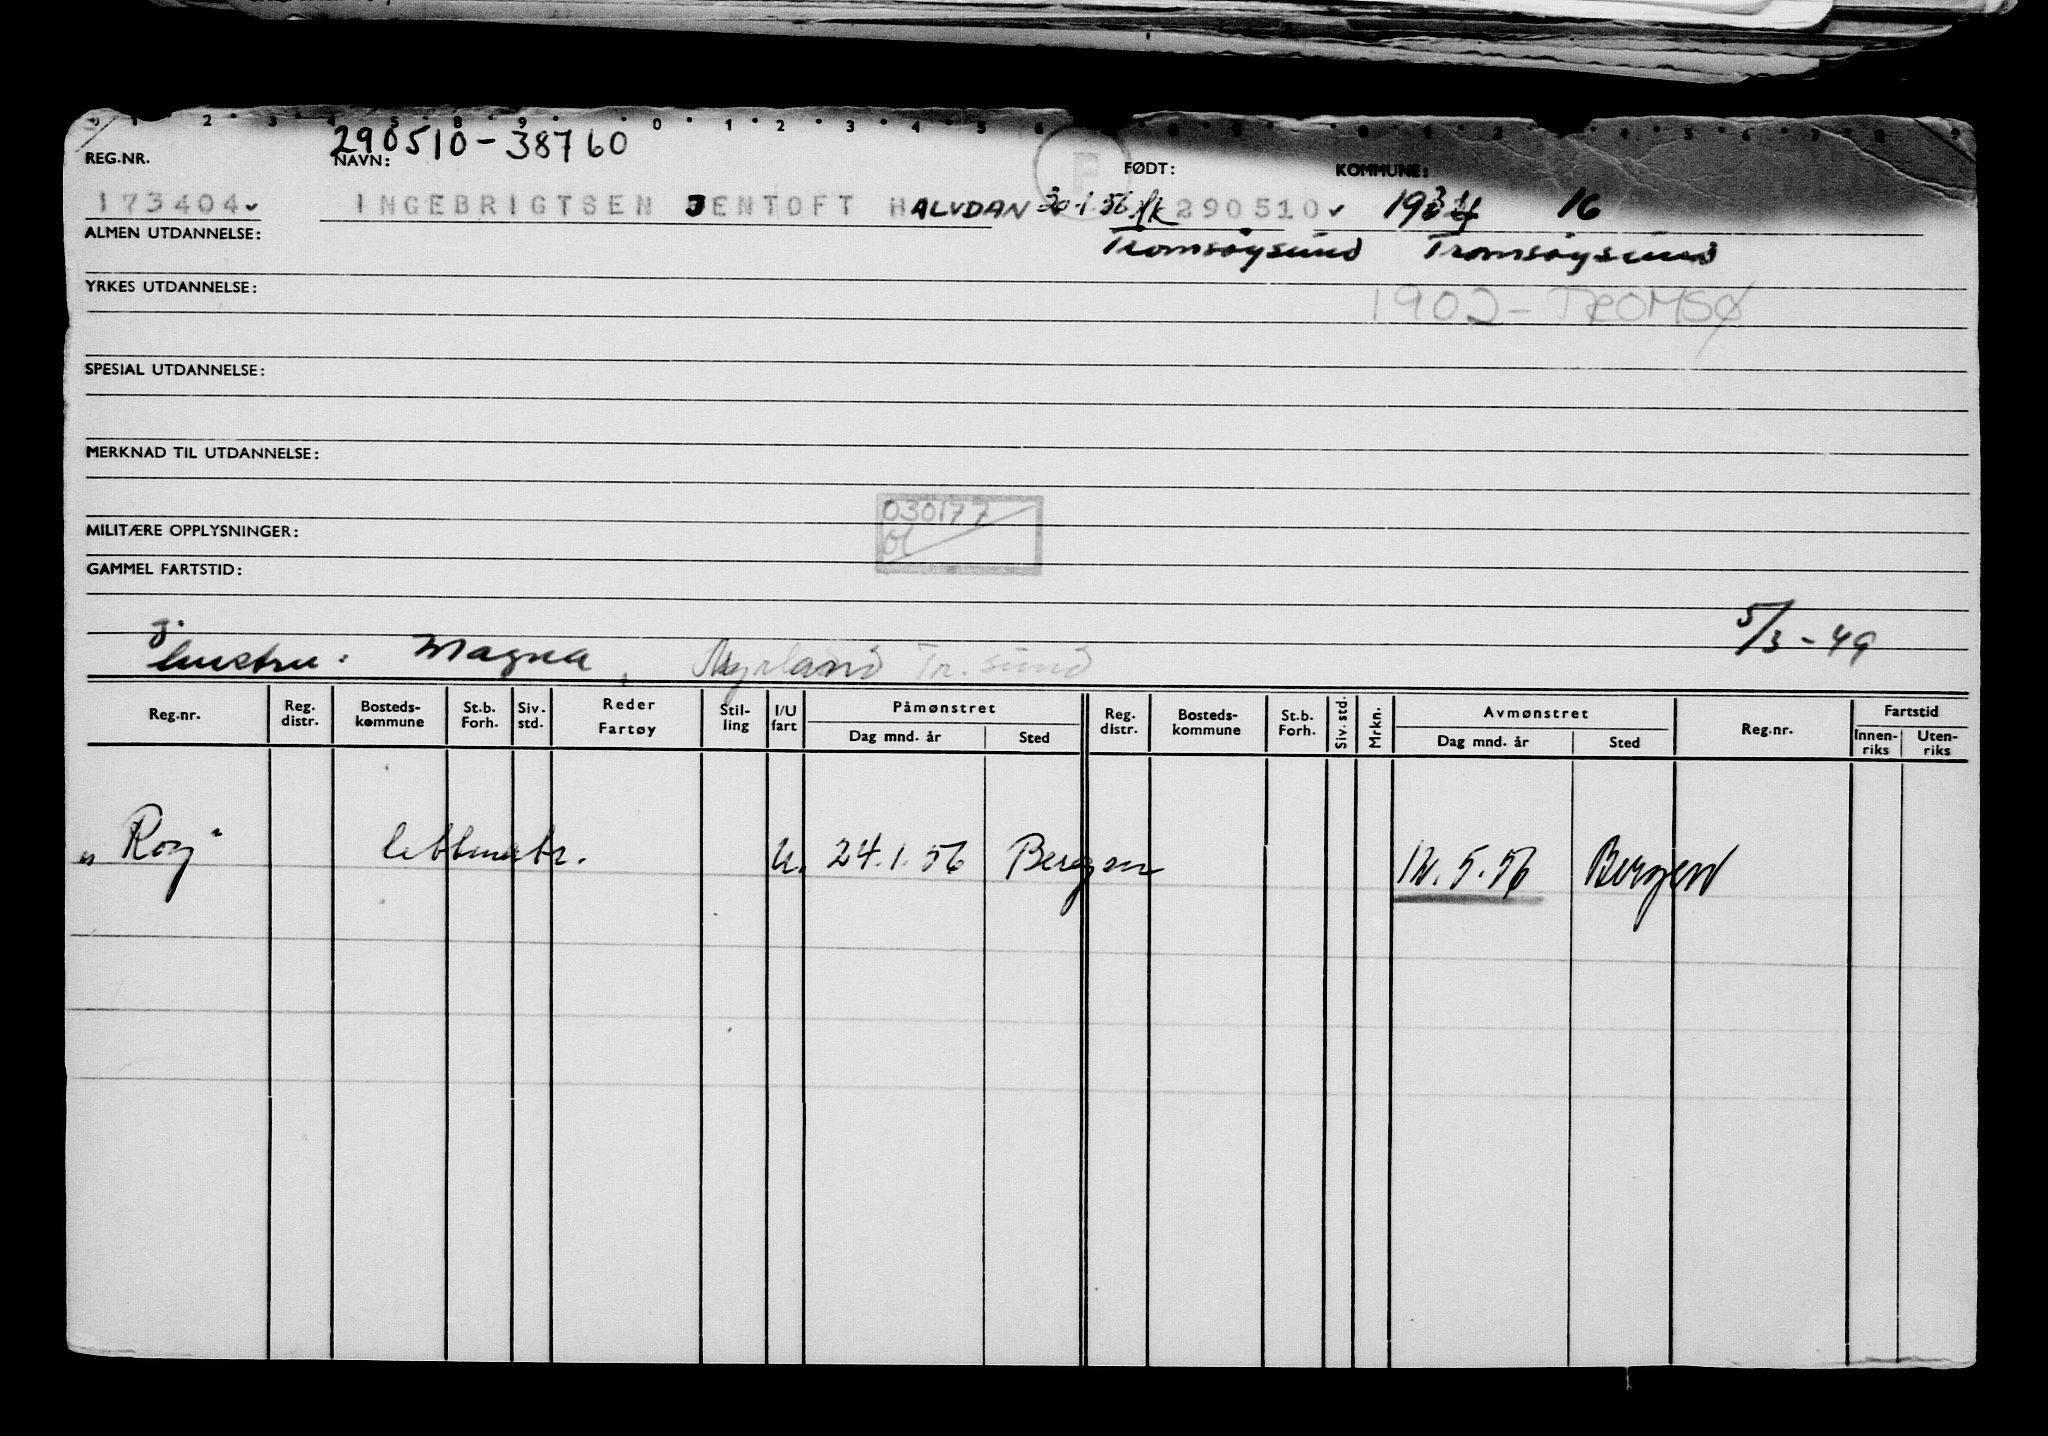 290510-38760
REG.NR. NAVN: FØDT: KOMMUNE:
173404 INGEBRIGTSEN JENTOFT HALVDAN 30-1.56 290510 16
Tromsøysund Tromsøysund
ALMEN UTDANNELSE:
YRKES UTDANNELSE:
1902-TROMSØ
SPESIAL UTDANNELSE:
MERKNAD TIL UTDANNELSE:
030177
MILITÆRE OPPLYSNINGER:
GAMMEL FARTSTID:
5/3-49
hustru: Magna, Myrland Tr.sund
Reg.nr. Reg. distr. Bosteds-kommune St.b. Forh. Siv. std. Reder Fartøy Stil-ling I/U fart Påmønstret Dag mnd. år Sted Reg. distr. Bosteds-kommune St.b. Forh. Siv. std. Mrkn. Avmønstret Dag mnd. år Sted Reg.nr. Fartstid Innen-riks Uten-riks
"Roy" lettmatr. U. 24.1.56 Bergen 12.5.56 Bergen